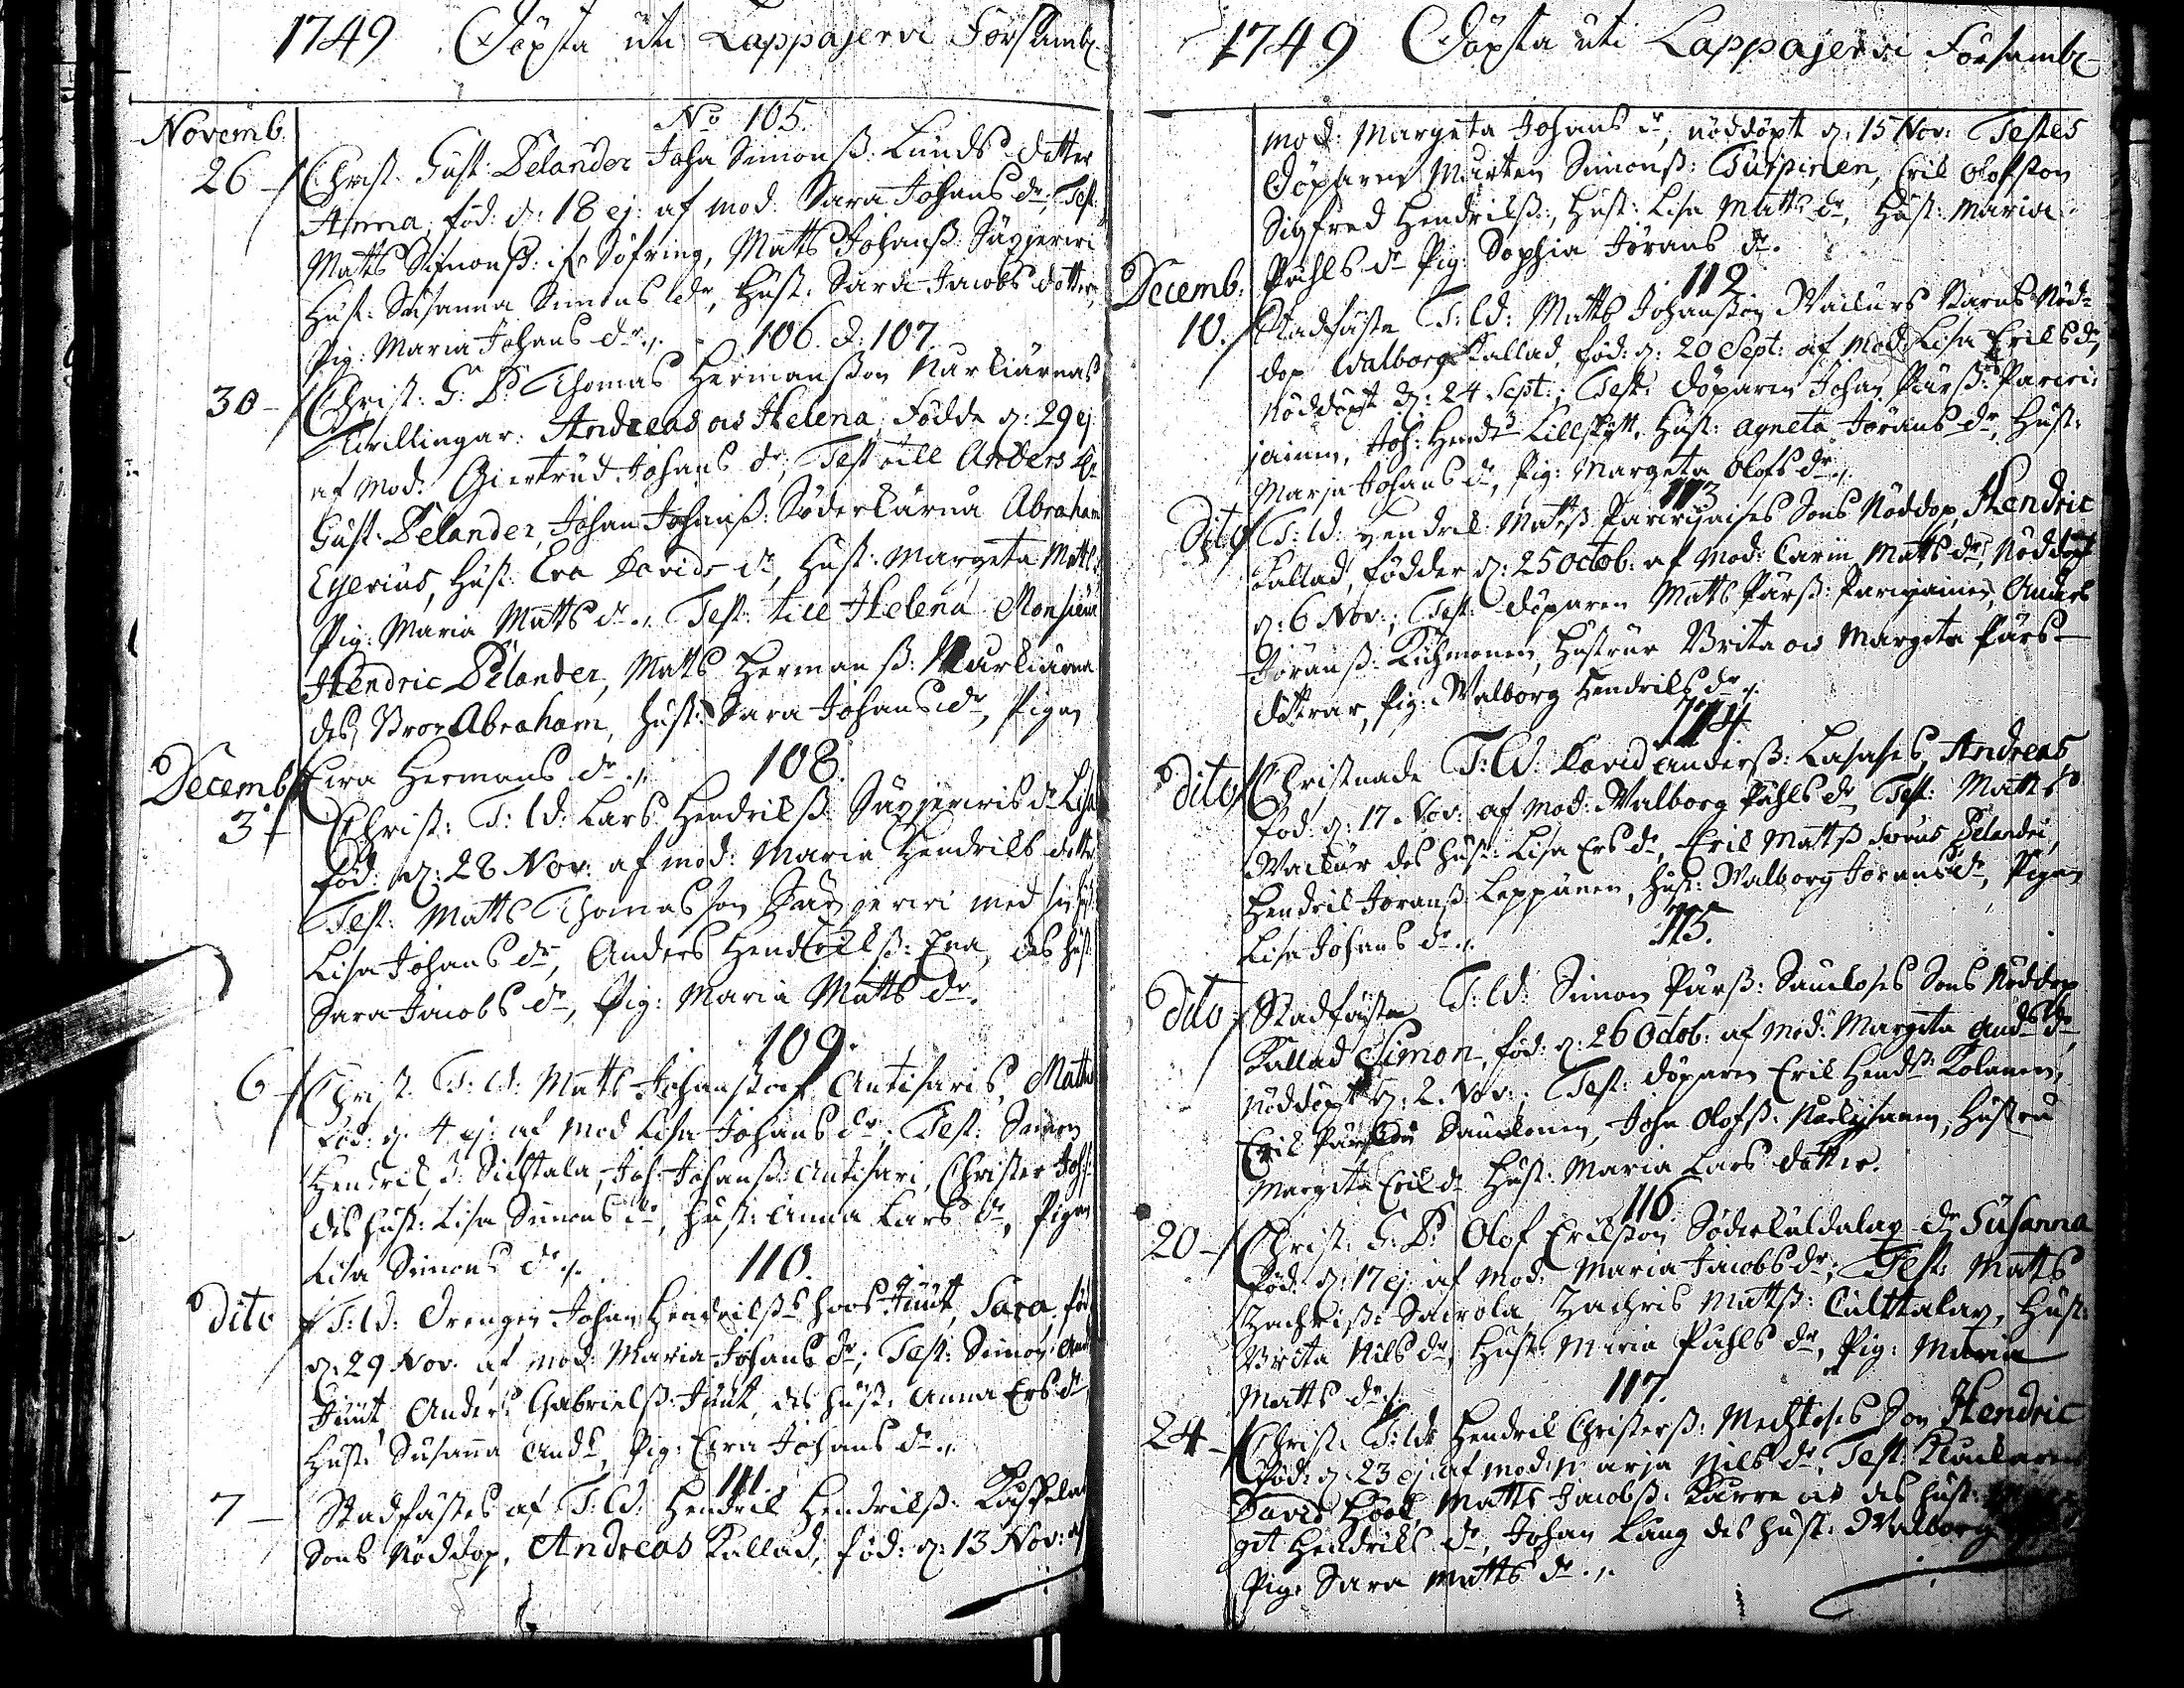 1749 Döpta uti Lappajervi Försambl.
Novemb.
No 105.
26 Christ. Gust: Pelander Joha Simonß: Lunds dotter
Anna, föd: d: 18 ej: af mod: Sara Johans dr, Test:
Matts Simonß: Söfring, Matts Johanß: Säyjerwi
Hust: Susanna Simons dr, Hust: Sara Jacobs dotter,
Pig: Maria Johans dr.
106. & 107.
30 Christ: G: P: Thomas Hermansson Kurkiärnas
Twillingar: Andreas os Helena, födde d: 29 ej
af mod: Giertrud Johans dr, Test till Anders
Gust: Pelander, Johan Johanß: Söderkärna Abraham
Eyerius, Hust: Eva Davids dr, Hust: Margeta Matts
Pig: Maria Matts dr., Test: till Helena Monsieur
Hendric Pelander, Matts Hermanß: Kurkiärna
des Bror Abraham, Hust: Sara Johans dr, Pigan
Eva Hermans dr.
108.
Decemb.
3 Christ: T: W: Lars Hendrikß: Säyjerwis dr Lisa
föd: d: 28 Nov: af mod: Maria Hendriks dotter
Test: Matts Thomasson Säyjerwi med sin hust:
Lisa Johans dr, Anders Hendrikß: des hust:
Sara Jacobs dr, Pig: Maria Matts dr.
109.
6 Christ. T: W: Matts Johansson Antisaris, Matts
föd: d. 4 ej: af mod Lisa Johans dr, Test: Simon
Hendrikß: Johanß: Antisari, Christer Joh:
des hust: Lisa Simons dr, hust: Anna Lars dr, Pigan
Lisa Simons dr.
110.
Dito T: W: Drengen Johan Hendrikß hoos Juut, Sara, föd
d: 29 Nov. af mod: Maria Johans dr, Test: Simon And
Juut, Anders Gabrielß: Juut, des hust: Anna Ers dr
Hust: Susanna And, Pig: Eva Johans dr.
111
7 Stadfästes af T: W: Hendrik Hendrikß.
Sons Nöddop, Andreas Kallad, föd: d: 13 Nov: af
1749 Döpta uti Lappajervi Försambl
mod: Margeta Johans dr, nöddöpt d: 15 Nov: Testes
Döparen Mårten Simonß: Turpinen, Erik Olofsson
Sigfred Hendrikß:, Hust: Lisa Matts dr, Hust: Maria
Påhls dr Pig: Sophia Jörans dr.
Decemb:
112
10. Stadfäste T: W: Matts Johansson Barns Nöd-
dop Walborg Kallad, föd: d: 20 Sept: af Mod: Lisa Eriks dr,
Nöddöpt d: 24 Sept:, Test: döparen Johan Pärß:
Joh: Hendß Lillskytt, Hust: Agneta Jörans dr, Hust:
Marja Johans dr, Pig: Margeta Olofs dr.
113
Dito T: W: Hendrik Matsß: Sons Nöddop, Hendric
Kallad, födder d: 25 Octob: af Mod: Carin Matts dr, Nöddöpt
d: 6 Nov:, Test: döparen Matts Pärß: Anders
Jöranß: Kuhmonen, Hustrur Brita os Margeta Pärs
döttrar, Pig: Walborg Hendriks dr.
114
Dito Christnade T: W: David Anderß: Lasases, Andreas
föd: d: 17 Nov: af mod: Walborg Påhls dr Test: Matts
des hust: Lisa Ers dr, Erik Mattß
Hendrik Joranß: Leppänen, Hust: Walborg Jörans dr, Pigan
Lisa Johans dr.
115.
Dito Stadfästes T: W: Simon Pärß: Sons Nöddop
Kallad Simon, föd: d: 26 Octob: af mod: Margeta Ands dr
Nöddöpt d: 2. Nov:, Test: döparen Erik Hendß: Kolanen,
Erik Savilonen, John Olofß: Hustru
Margeta Erik dr Hust: Maria Lars dotter.
116
20 Christ: G: P: Olof Eriksson dr Susanna
föd: d: 17 ej: af mod: Maria Jacobs dr, Test: Matts
Zachrisß: Zachris Mattß: Hust:
Brita Nils dr, Hust: Maria Påhls dr, Pig: Maria
Matts dr.
117.
24 Christ: T: W: Hendrik Christerß: Son Hendric
föd: d: 23 ej: af mod: Marja Nils dr, Test: Klockaren
David Höök, Matts Jacobß: Karre os des hust:
Hendriks dr, Johan Lång des hust: Walborg
Pig: Sara Matts dr.